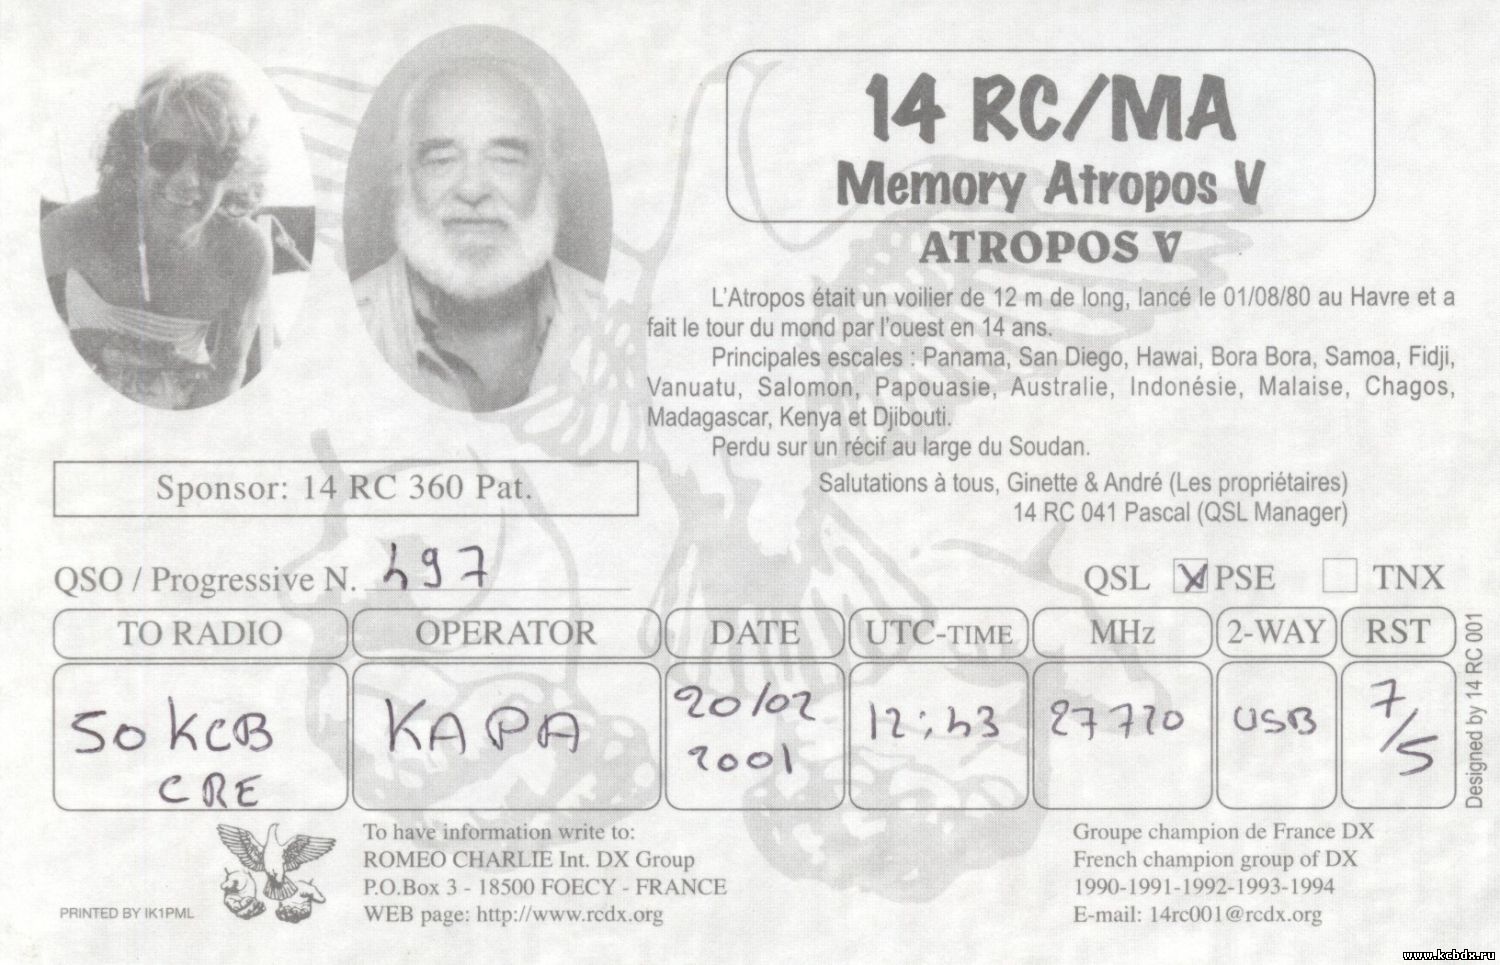 14 RC/MA
Memory Atropos V
ATROPOS V
L'Atropos était un voilier de 12 m de long, lancé le 01/08/80 au Havre et a
fait le tour du mond par l'ouest en 14 ans.
Principales escales : Panama, San Diego, Hawai, Bora Bora, Samoa, Fidji,
Vanuatu, Salomon, Papouasie, Australie, Indonésie, Malaise, Chagos,
Madagascar, Kenya et Djibouti.
Perdu sur un récif au large du Soudan.
Salutations à tous, Ginette & André (Les propriétaires)
14 RC 041 Pascal (QSL Manager)
Sponsor: 14 RC 360 Pat.
QSO / Progressive N. 497
QSL X PSE TNX
TO RADIO OPERATOR DATE UTC-TIME MHz 2-WAY RST
50 KCB CRE
KAPA
20/02 2001
12:43
27720
USB
7/5
Designed by 14 RC 001
PRINTED BY IK1PML
To have information write to:
ROMEO CHARLIE Int. DX Group
P.O.Box 3 - 18500 FOECY - FRANCE
WEB page: http://www.rcdx.org
Groupe champion de France DX
French champion group of DX
1990-1991-1992-1993-1994
E-mail: 14rc001@rcdx.org
www.kcbdx.ru